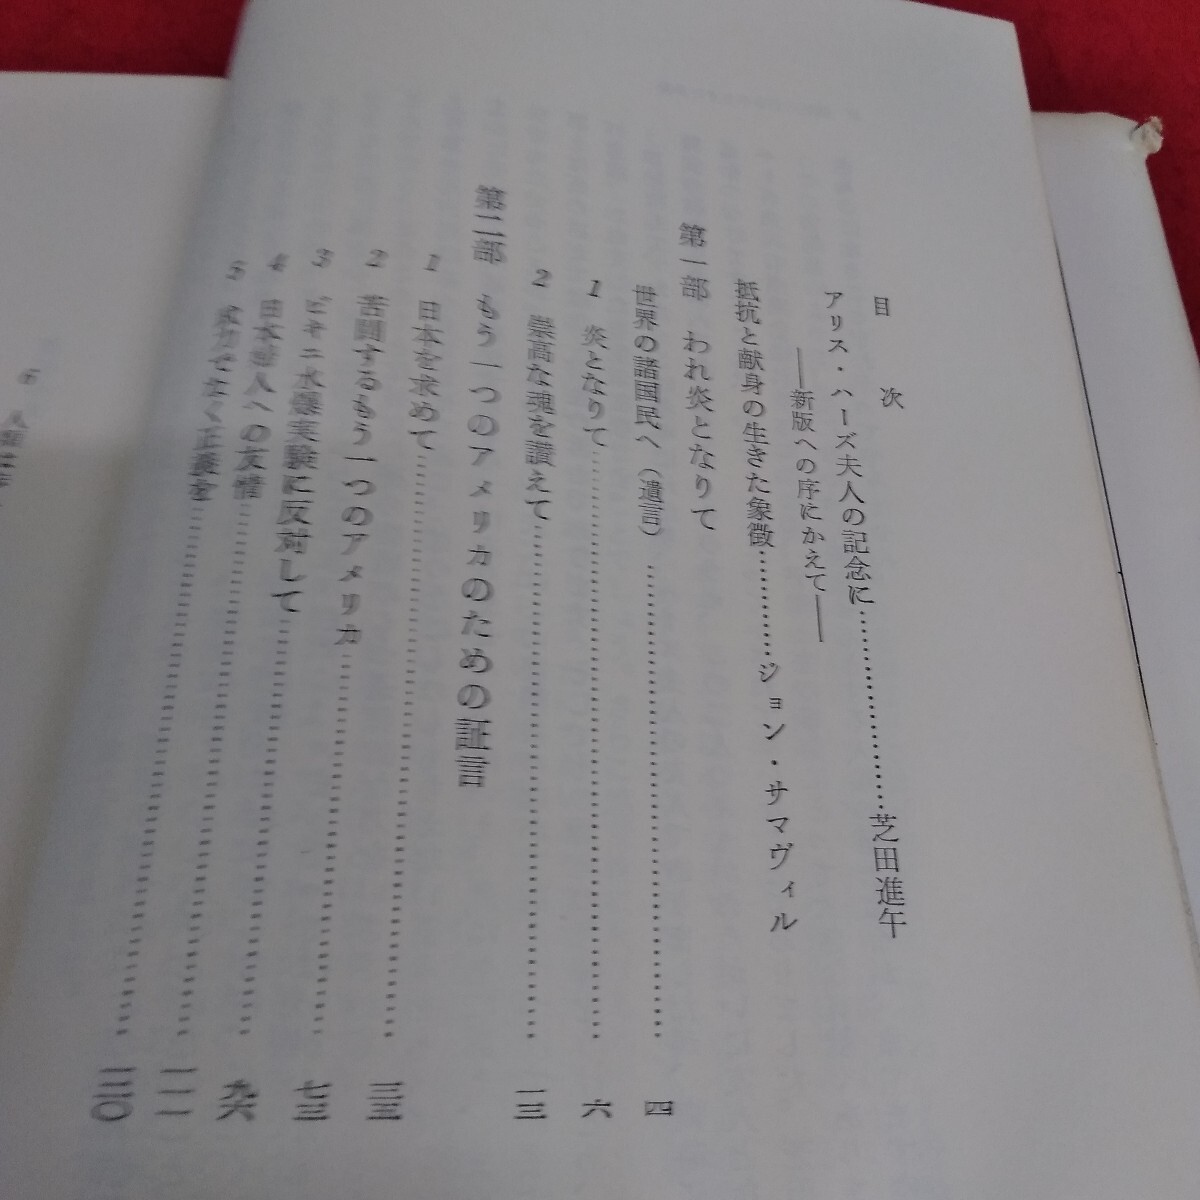 目次
アリス・ハーズ夫人の記念に…………………芝田進午
――新版への序にかえて――
抵抗と献身の生きた象徴…………ジョン・サマヴィル
第一部 われ炎となりて
世界の諸国民へ（遺言）…………………四
1 炎となりて…………………六
2 崇高な魂を讃えて…………………一三
第二部 もう一つのアメリカのための証言
1 日本を求めて…………………三三
2 苦闘するもう一つのアメリカ…………………七三
3 ビキニ水爆実験に反対して…………………九六
4 日本婦人への友情…………………一一一
5 武力でなく正義を…………………一二〇
6 人類は